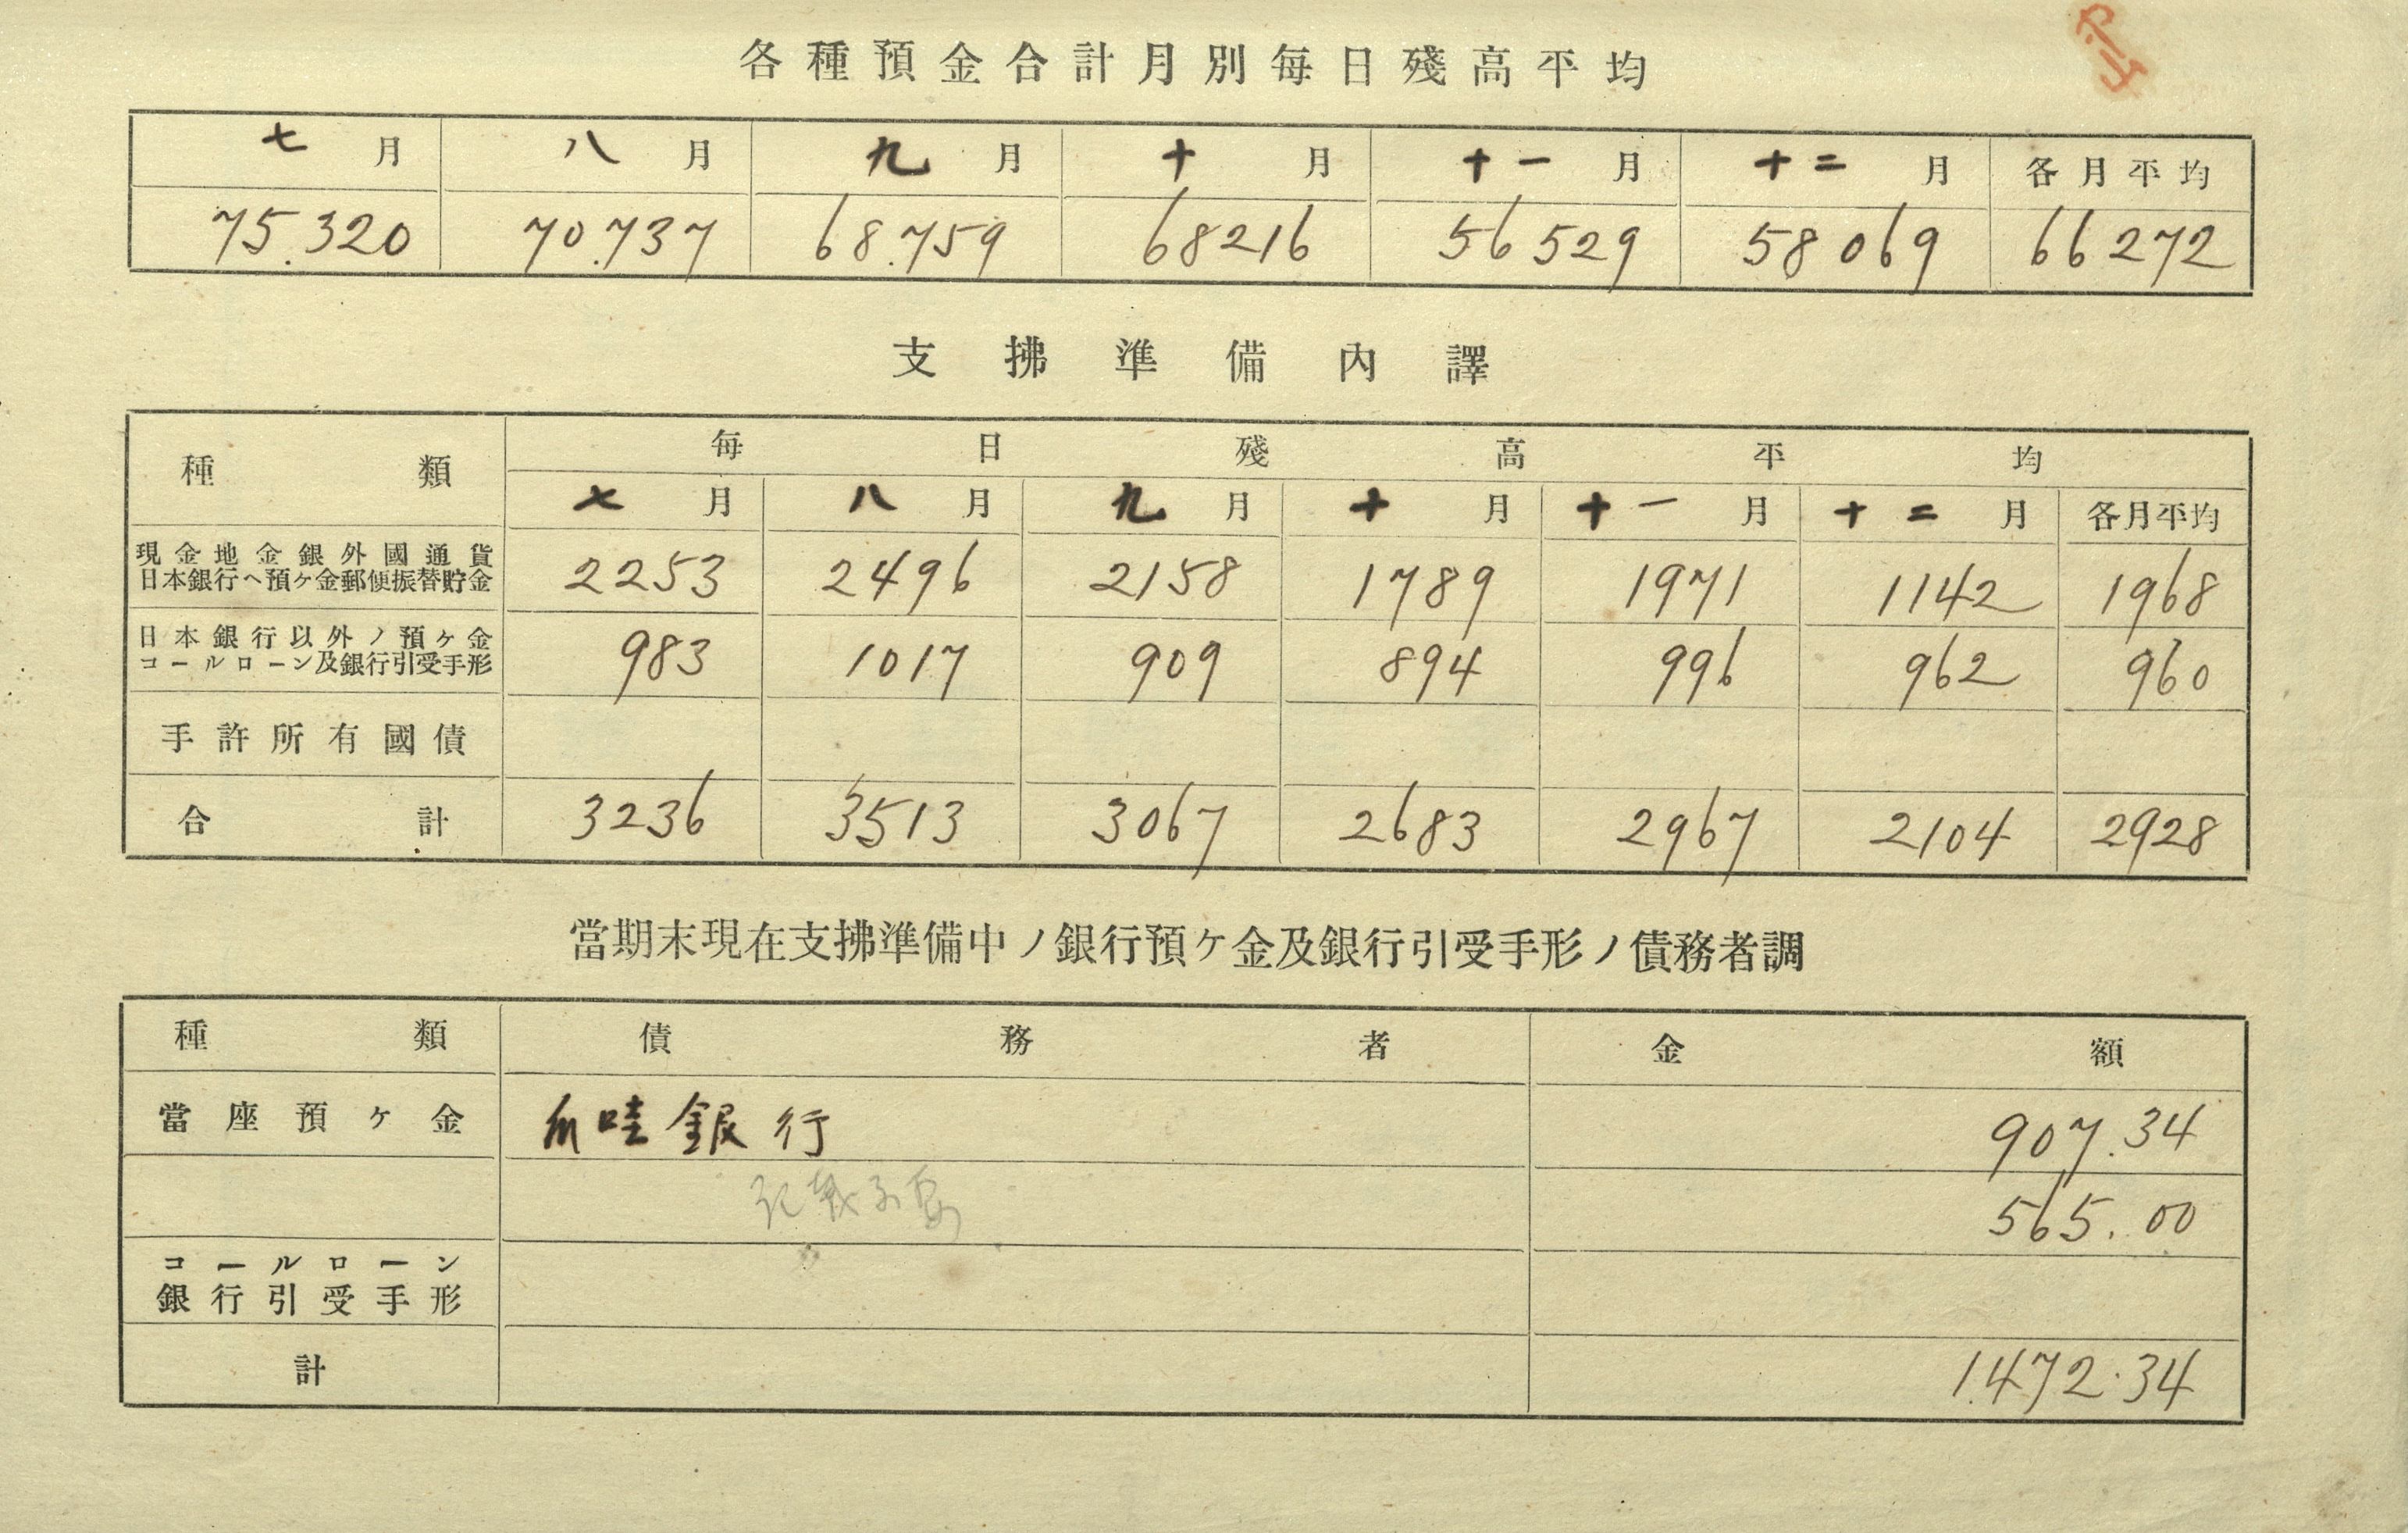 各種預金合計月別每日殘高平均
七月 八月 九月 十月 十一月 十二月 各月平均
75.320 70.737 68.759 68216 56529 58069 66272
支拂準備內譯
種類 每日殘高平均
七月 八月 九月 十月 十一月 十二月 各月平均
現金地金銀外國通貨
日本銀行ヘ預ケ金郵便振替貯金 2253 2496 2158 1789 1971 1142 1968
日本銀行以外ノ預ケ金
コールローン及銀行引受手形 983 1017 909 894 996 962 960
手許所有國債
合計 3236 3513 3067 2683 2967 2104 2928
當期末現在支拂準備中ノ銀行預ケ金及銀行引受手形ノ債務者調
種類 債務者 金額
當座預ケ金 爪哇銀行 907.34
記載 565.00
コールローン
銀行引受手形
計 1.472.34